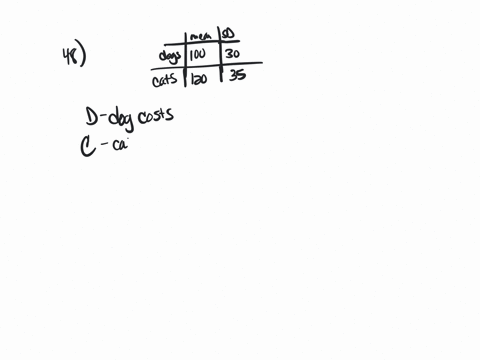 48)
mean SD
dogs 100 30
cats 120 35
D-dog costs
C-ca